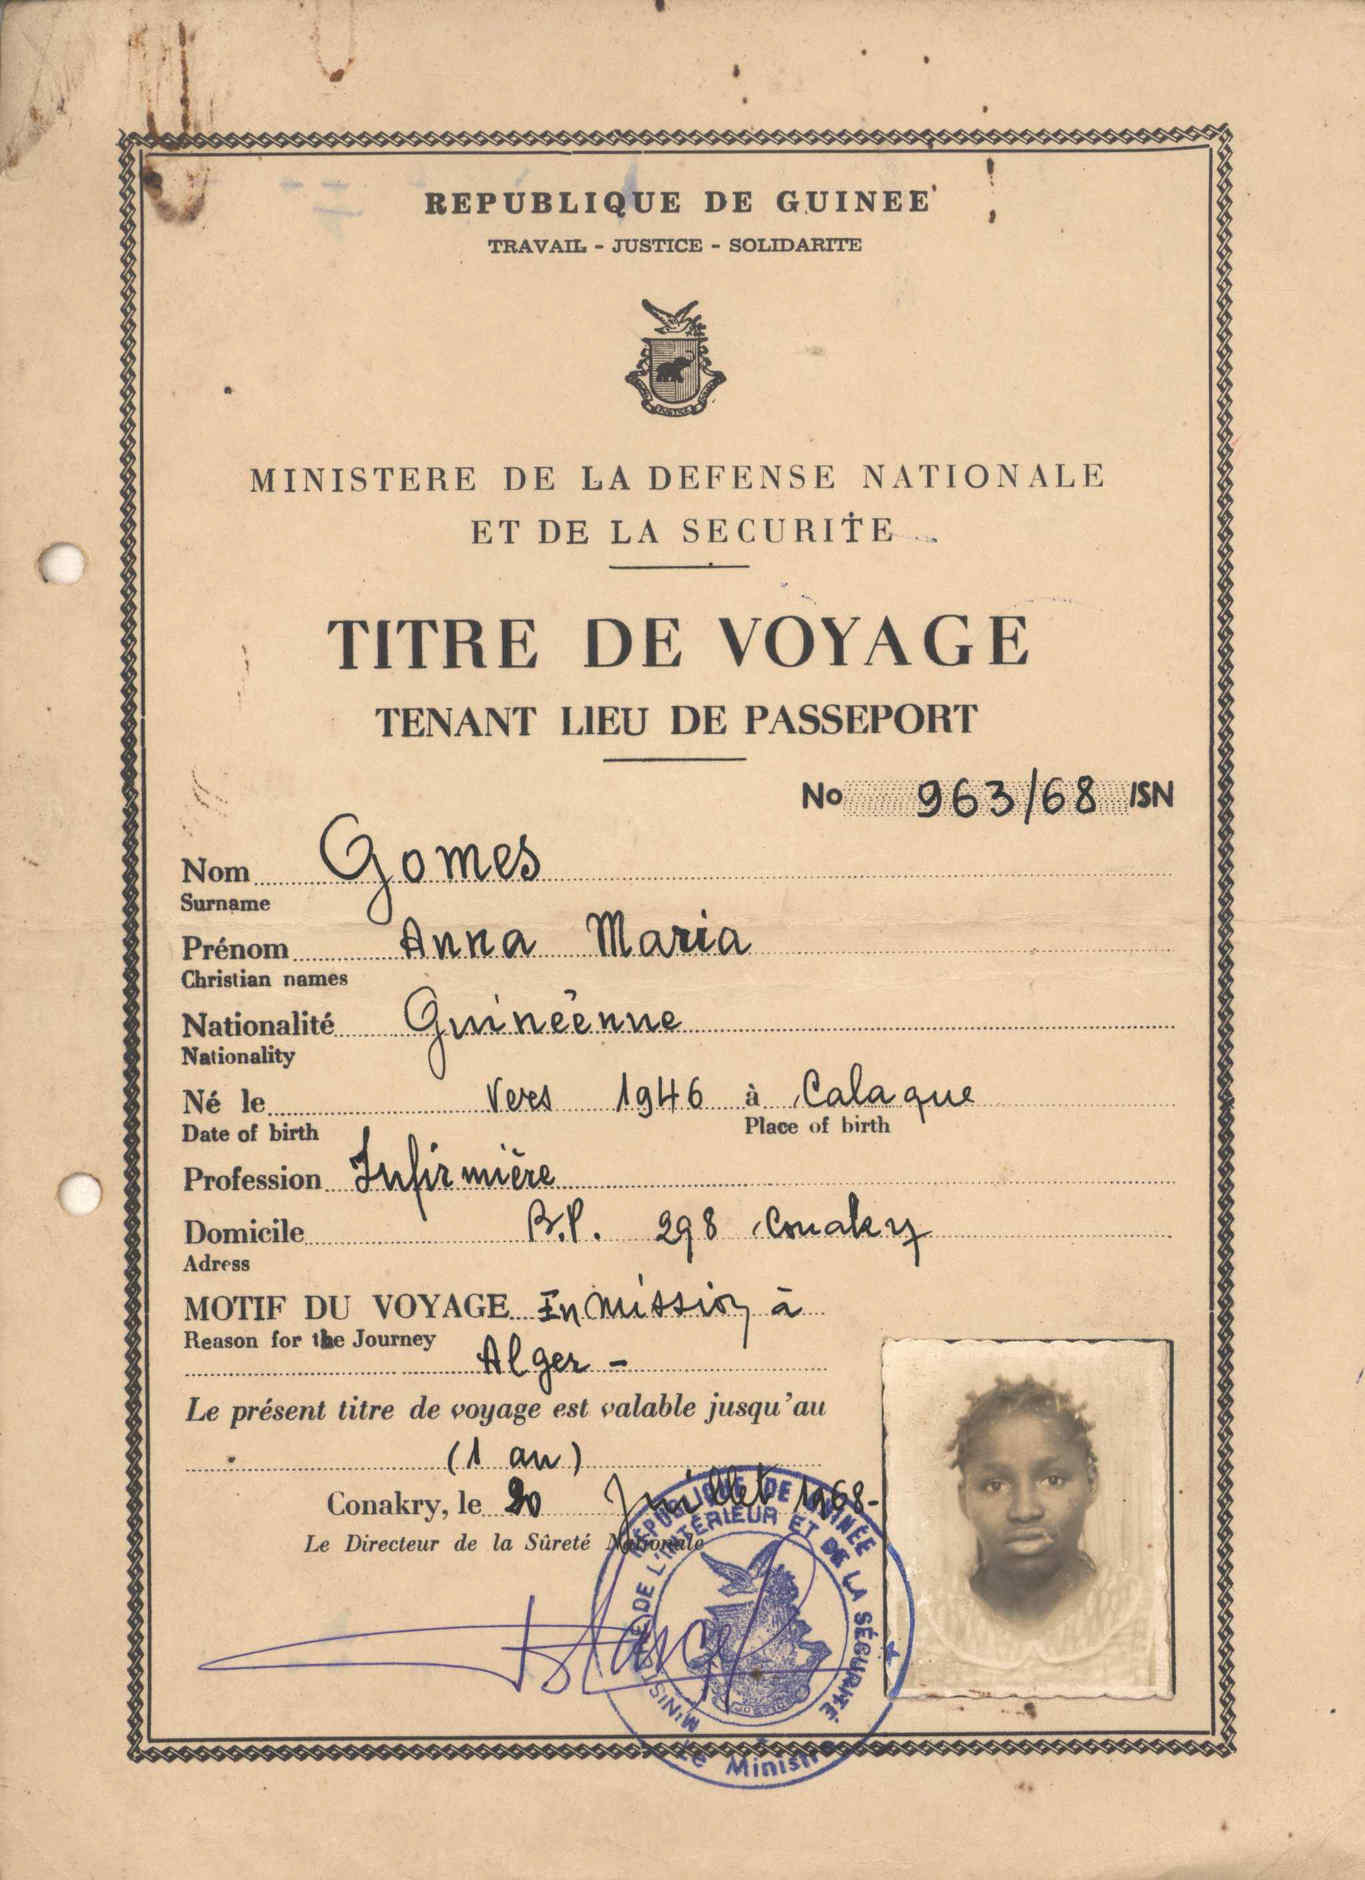 REPUBLIQUE DE GUINEE
TRAVAIL - JUSTICE - SOLIDARITE
JUSTICE
MINISTERE DE LA DEFENSE NATIONALE
ET DE LA SECURITE
TITRE DE VOYAGE
TENANT LIEU DE PASSEPORT
No 963/68 /SN
Nom Gomes
Surname
Prénom Anna Maria
Christian names
Nationalité Guinéenne
Nationality
Né le Vers 1946 à Calaque
Date of birth Place of birth
Profession Infirmière
Domicile B.P. 298 Conakry
Adress
MOTIF DU VOYAGE En mission à
Reason for the Journey
Alger -
Le présent titre de voyage est valable jusqu'au
(1 an)
Conakry, le 20 Juillet 1968-
Le Directeur de la Sûreté Nationale
REPUBLIQUE DE GUINÉE
MINISTÈRE DE L'INTÉRIEUR ET DE LA SÉCURITÉ
Le Ministre